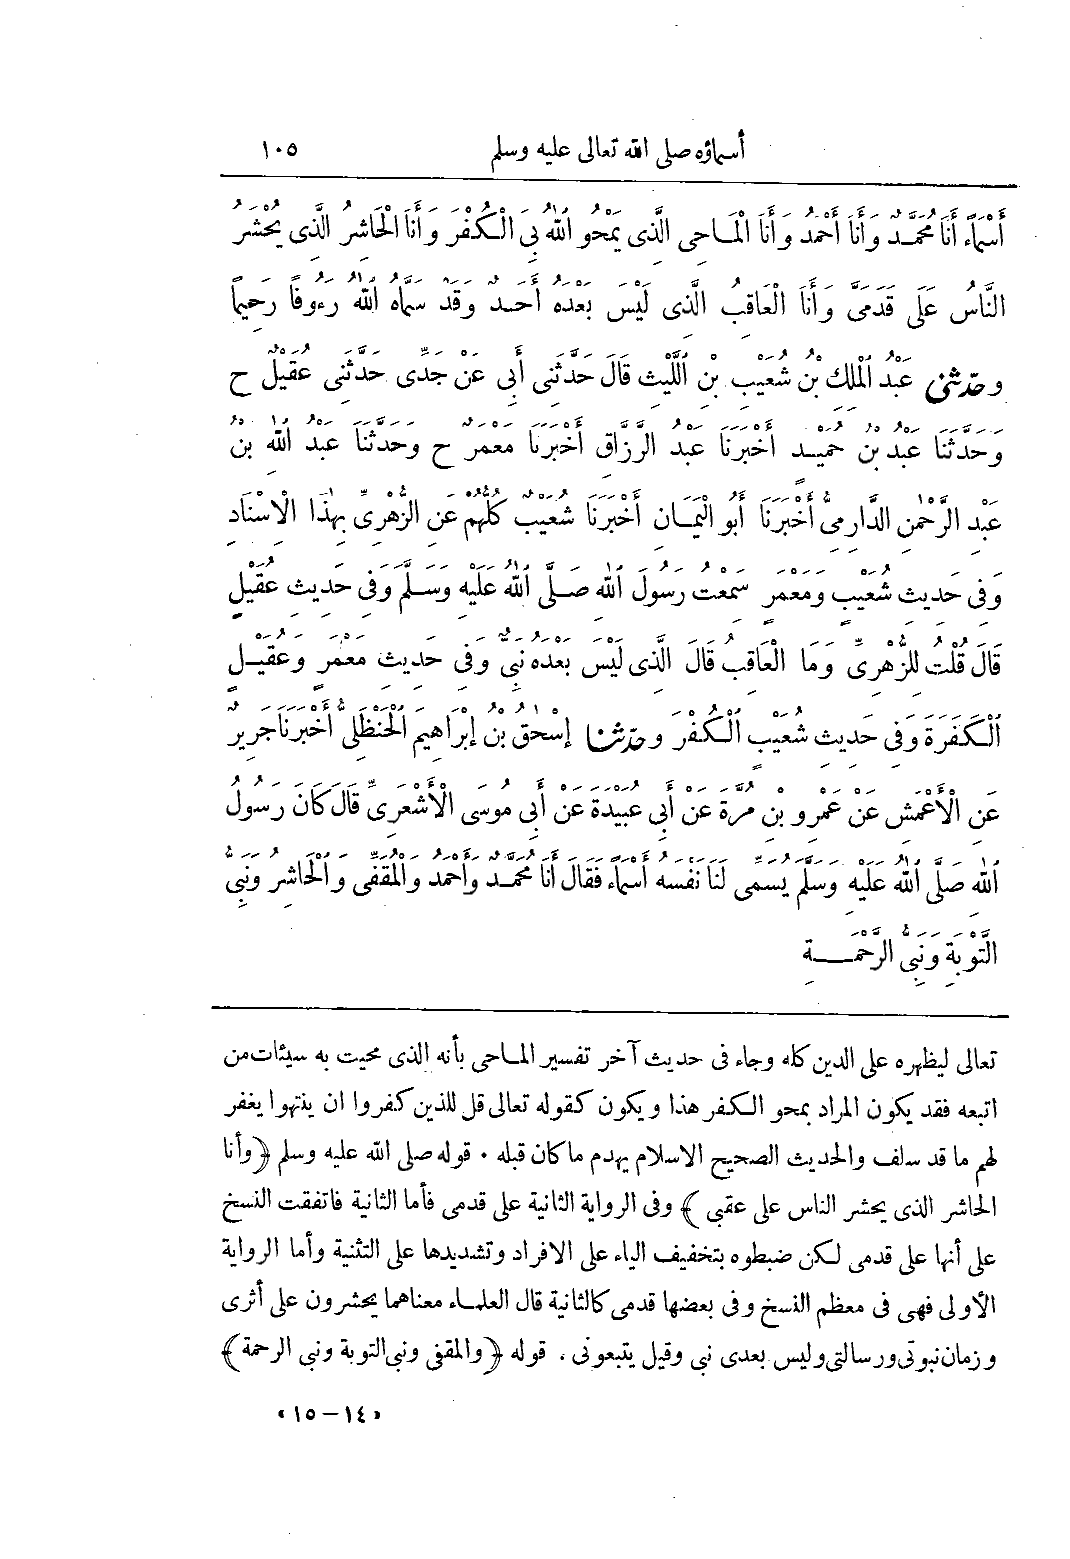 أسماؤه صلى الله تعالى عليه وسلم ١٠٥
أَسْمَاءً أَنَا مُحَمَّدٌ وَأَنَا أَحْمَدُ وَأَنَا الْمَاحِى الَّذِى يَمْحُو اللهُ بِىَ الْكُفْرَ وَأَنَا الْحَاشِرُ الَّذِى يُحْشَرُ
النَّاسُ عَلَى قَدَمَىَّ وَأَنَا الْعَاقِبُ الَّذِى لَيْسَ بَعْدَهُ أَحَدٌ وَقَدْ سَمَّاهُ اللهُ رَءُوفًا رَحِيمًا
وحَدَّثَنِى عَبْدُ الْمَلِكِ بْنُ شُعَيْبِ بْنِ اللَّيْثِ قَالَ حَدَّثَنِى أَبِى عَنْ جَدِّى حَدَّثَنِى عُقَيْلٌ ح
وَحَدَّثَنَا عَبْدُ بْنُ حُمَيْدٍ أَخْبَرَنَا عَبْدُ الرَّزَّاقِ أَخْبَرَنَا مَعْمَرٌ ح وَحَدَّثَنَا عَبْدُ اللهِ بْنُ
عَبْدِ الرَّحْمٰنِ الدَّارِمِىُّ أَخْبَرَنَا أَبُو الْيَمَانِ أَخْبَرَنَا شُعَيْبٌ كُلُّهُمْ عَنِ الزُّهْرِىِّ بِهٰذَا الْاِسْنَادِ
وَفِى حَدِيثِ شُعَيْبٍ وَمَعْمَرٍ سَمِعْتُ رَسُولَ اللهِ صَلَّى اللهُ عَلَيْهِ وَسَلَّمَ وَفِى حَدِيثِ عُقَيْلٍ
قَالَ قُلْتُ لِلزُّهْرِىِّ وَمَا الْعَاقِبُ قَالَ الَّذِى لَيْسَ بَعْدَهُ نَبِىٌّ وَفِى حَدِيثِ مَعْمَرٍ وَعُقَيْلٍ
الْكَفَرَةَ وَفِى حَدِيثِ شُعَيْبٍ الْكُفْرَ وحَدَّثَنَا إِسْحٰقُ بْنُ إِبْرَاهِيمَ الْحَنْظَلِىُّ أَخْبَرَنَا جَرِيرٌ
عَنِ الْأَعْمَشِ عَنْ عَمْرِو بْنِ مُرَّةَ عَنْ أَبِى عُبَيْدَةَ عَنْ أَبِى مُوسَى الْأَشْعَرِىِّ قَالَ كَانَ رَسُولُ
اللهِ صَلَّى اللهُ عَلَيْهِ وَسَلَّمَ يُسَمِّى لَنَا نَفْسَهُ أَسْمَاءً فَقَالَ أَنَا مُحَمَّدٌ وَأَحْمَدُ وَالْمُقَفِّى وَالْحَاشِرُ وَنَبِىُّ
التَّوْبَةِ وَنَبِىُّ الرَّحْمَةِ
تعالى ليظهره على الدين كله وجاء فى حديث آخر تفسير الماحى بأنه الذى محيت به سيئات من
اتبعه فقد يكون المراد بمحو الكفر هذا ويكون كقوله تعالى قل للذين كفروا ان ينتهوا يغفر
لهم ما قد سلف والحديث الصحيح الاسلام يهدم ما كان قبله . قوله صلى الله عليه وسلم ﴿وأنا
الحاشر الذى يحشر الناس على عقبى﴾ وفى الرواية الثانية على قدمى فأما الثانية فاتفقت النسخ
على أنها على قدمى لكن ضبطوه بتخفيف الياء على الافراد وتشديدها على التثنية وأما الرواية
الأولى فهى فى معظم النسخ وفى بعضها قدمى كالثانية قال العلماء معناهما يحشرون على أثرى
وزمان نبوتى ورسالتى وليس بعدى نبى وقيل يتبعونى . قوله ﴿والمقفى ونبى التوبة ونبى الرحمة﴾
«١٤ – ١٥»